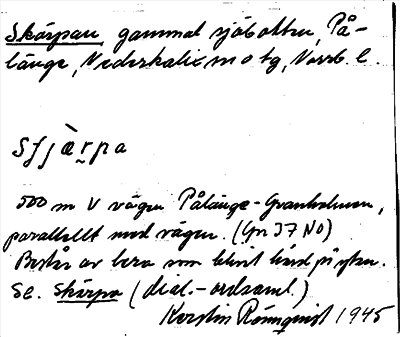 Skärpan, gammal sjöbotten, På-
länge, Nederkalix m o tg, Norrb. l.
Sʃjærpa
500 m V vägen Pålänge-Granholmen,
parallellt med vägen. (Gn 37 NO)
Består av lera som blivit hård på ytan.
Se. Skärpa (dial.-ordsaml.)
Kerstin Rönnqvist 1945